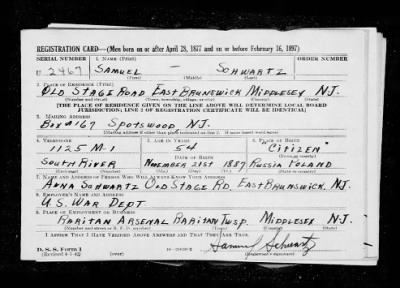 REGISTRATION CARD—(Men born on or after April 28, 1877 and on or before February 16, 1897)
SERIAL NUMBER 1. NAME (Print) ORDER NUMBER
U 2467 SAMUEL — SCHWARTZ
(First) (Middle) (Last)
2. PLACE OF RESIDENCE (Print)
OLD STAGE ROAD EAST BRUNSWICK MIDDLESEX N.J.
(Number and street) (Town, township, village, or city) (County) (State)
[THE PLACE OF RESIDENCE GIVEN ON THE LINE ABOVE WILL DETERMINE LOCAL BOARD
JURISDICTION; LINE 2 OF REGISTRATION CERTIFICATE WILL BE IDENTICAL]
3. MAILING ADDRESS
BOX #167 SPOTSWOOD N.J.
[Mailing address if other than place indicated on line 2. If same insert word same]
4. TELEPHONE 5. AGE IN YEARS 6. PLACE OF BIRTH
1125 M-1 54 "CITIZEN"
DATE OF BIRTH
SOUTH RIVER NOVEMBER 21ST 1887 RUSSIA POLAND
(Exchange) (Number) (Mo.) (Day) (Yr.) (State or country)
7. NAME AND ADDRESS OF PERSON WHO WILL ALWAYS KNOW YOUR ADDRESS
ANNA SCHWARTZ OLD STAGE RD. EAST BRUNSWICK, N.J.
8. EMPLOYER'S NAME AND ADDRESS
U.S. WAR DEPT
9. PLACE OF EMPLOYMENT OR BUSINESS
RARITAN ARSENAL RARITAN TWSP. MIDDLESEX N.J.
(Number and street or R. F. D. number) (Town) (County) (State)
I AFFIRM THAT I HAVE VERIFIED ABOVE ANSWERS AND THAT THEY ARE TRUE.
D. S. S. Form 1
(Revised 4-1-42) (over) Samuel Schwartz
(Registrant's signature)